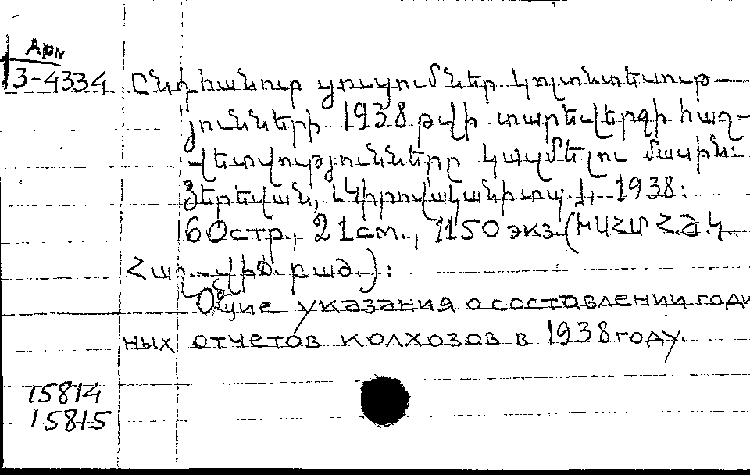 Арм
3-4334 Ընդհանուր ցուցումներ կոլտնտեսութ-
յունների 1938 թվի տարեվերջի հաշ-
վետվությունները կազմելու մասին:
Յերեվան, 1938:
60стр., 21см., 1150 экз. (ԽՍՀՄ ՀՁԿ
Հաշ. վիճ. բաժ.):
Общие указания о составлении годи
ных отчетов колхозов в 1938 году.
15814
15815